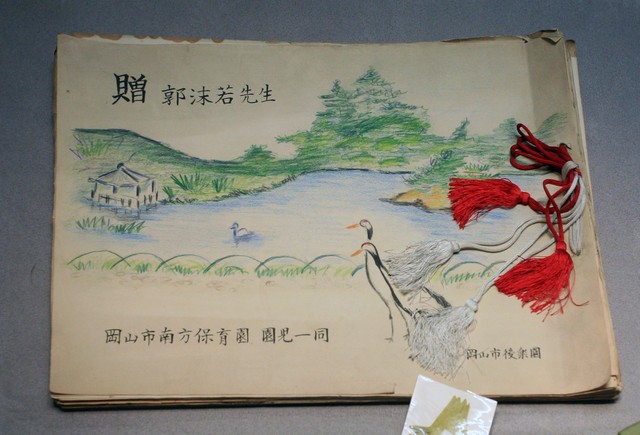 贈 郭沫若先生
岡山市南方保育園 園児一同
岡山市後楽園